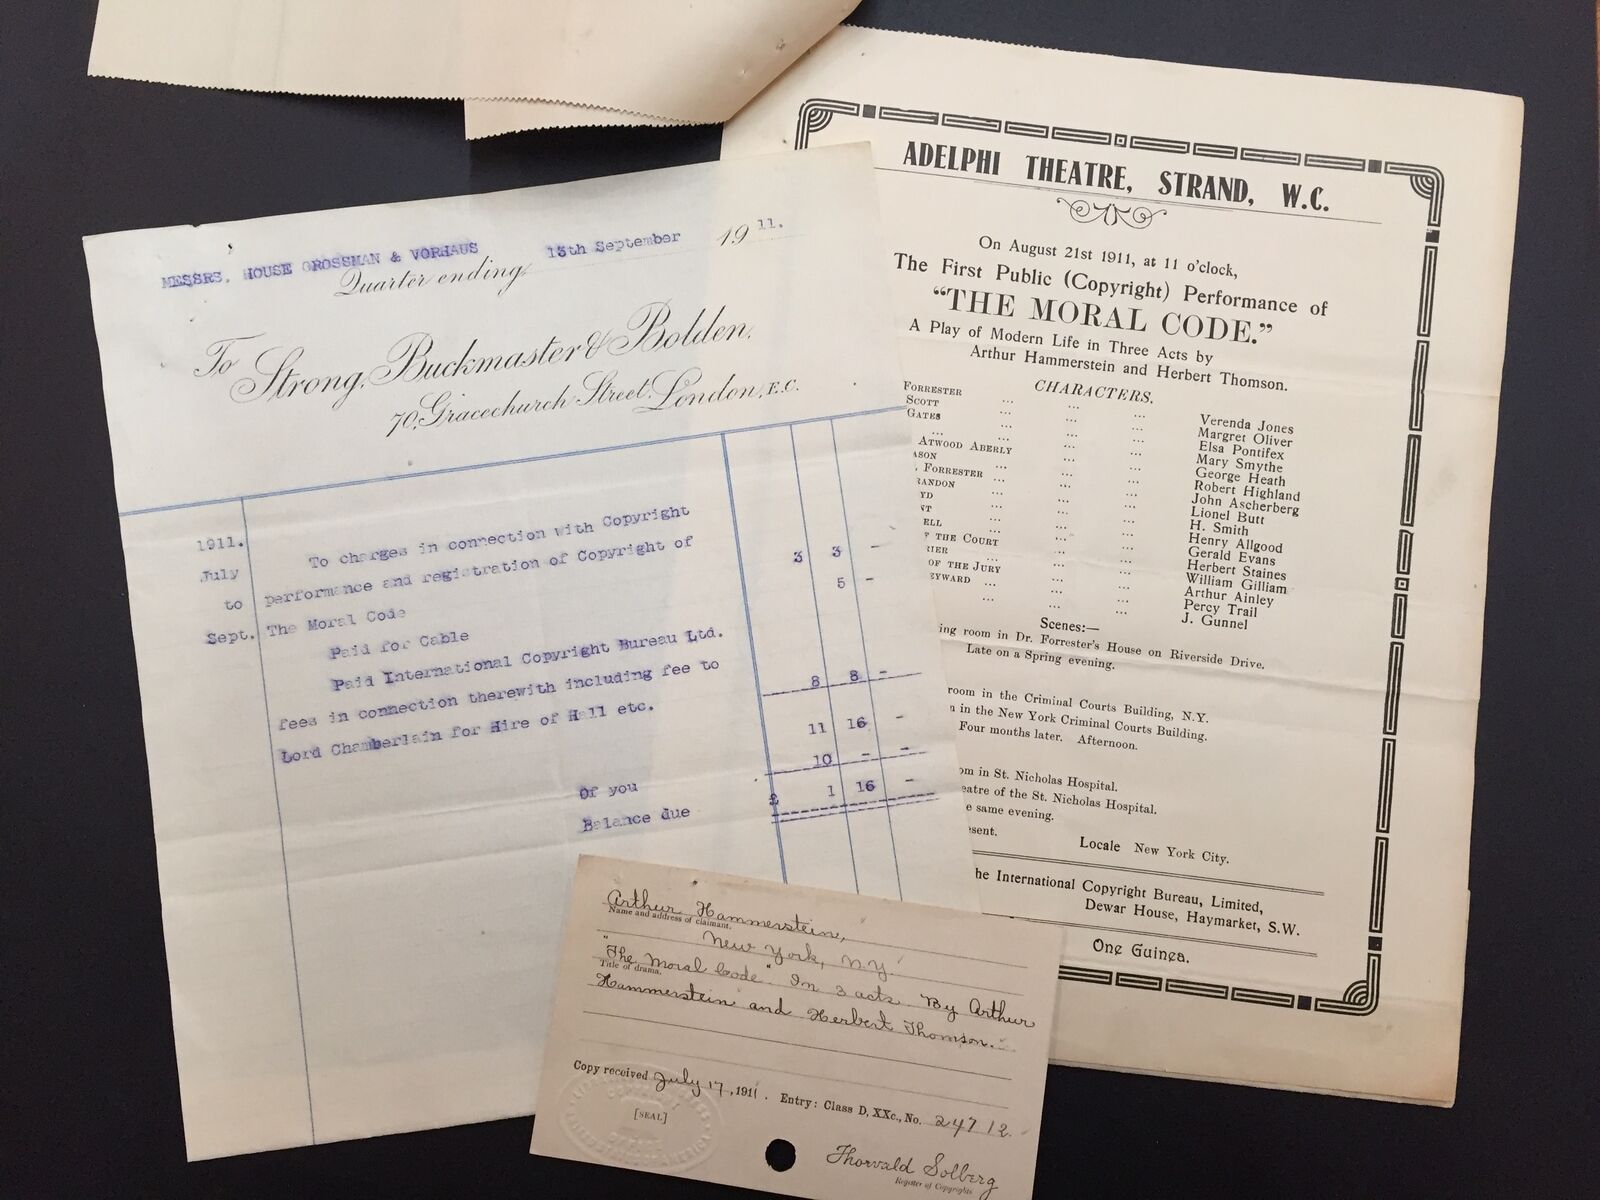 MESSRS. HOUSE GROSSMAN & VORHAUS
Quarter ending 13th September 1911.
To Strong, Buckmaster & Bolden,
70, Gracechurch Street, London, E.C.
1911.
July
to
Sept.
To charges in connection with Copyright
performance and registration of Copyright of
The Moral Code
Paid for Cable
Paid International Copyright Bureau Ltd.
fees in connection therewith including fee to
Lord Chamberlain for Hire of Hall etc.
Of you
Balance due
3 3 -
5 -
8 8 -
11 16 -
10 - -
£ 1 16 -
ADELPHI THEATRE, STRAND, W.C.
On August 21st 1911, at 11 o'clock,
The First Public (Copyright) Performance of
"THE MORAL CODE."
A Play of Modern Life in Three Acts by
Arthur Hammerstein and Herbert Thomson.
CHARACTERS.
FORRESTER ... ... ... Verenda Jones
SCOTT ... ... ... Margret Oliver
GATES ... ... ... Elsa Pontifex
... ... ... Mary Smythe
ATWOOD ABERLY ... ... George Heath
ASON ... ... ... Robert Highland
FORRESTER ... ... ... John Ascherberg
RANDON ... ... ... Lionel Butt
YD ... ... ... H. Smith
NT ... ... ... Henry Allgood
ELL ... ... ... Gerald Evans
F THE COURT ... ... Herbert Staines
RIER ... ... ... William Gilliam
OF THE JURY ... ... Arthur Ainley
EYWARD ... ... ... Percy Trail
... ... ... J. Gunnel
Scenes:—
ing room in Dr. Forrester's House on Riverside Drive.
Late on a Spring evening.
room in the Criminal Courts Building, N.Y.
n in the New York Criminal Courts Building.
Four months later. Afternoon.
om in St. Nicholas Hospital.
eatre of the St. Nicholas Hospital.
e same evening.
esent.
Locale New York City.
he International Copyright Bureau, Limited,
Dewar House, Haymarket, S.W.
One Guinea.
Arthur Hammerstein,
Name and address of claimant.
New York, N.Y.
"The Moral Code" In 3 acts. By Arthur
Title of drama.
Hammerstein and Herbert Thomson.
Copy received July 17, 1911. Entry: Class D, XXc., No. 24712.
[SEAL]
Thorvald Solberg
Register of Copyrights